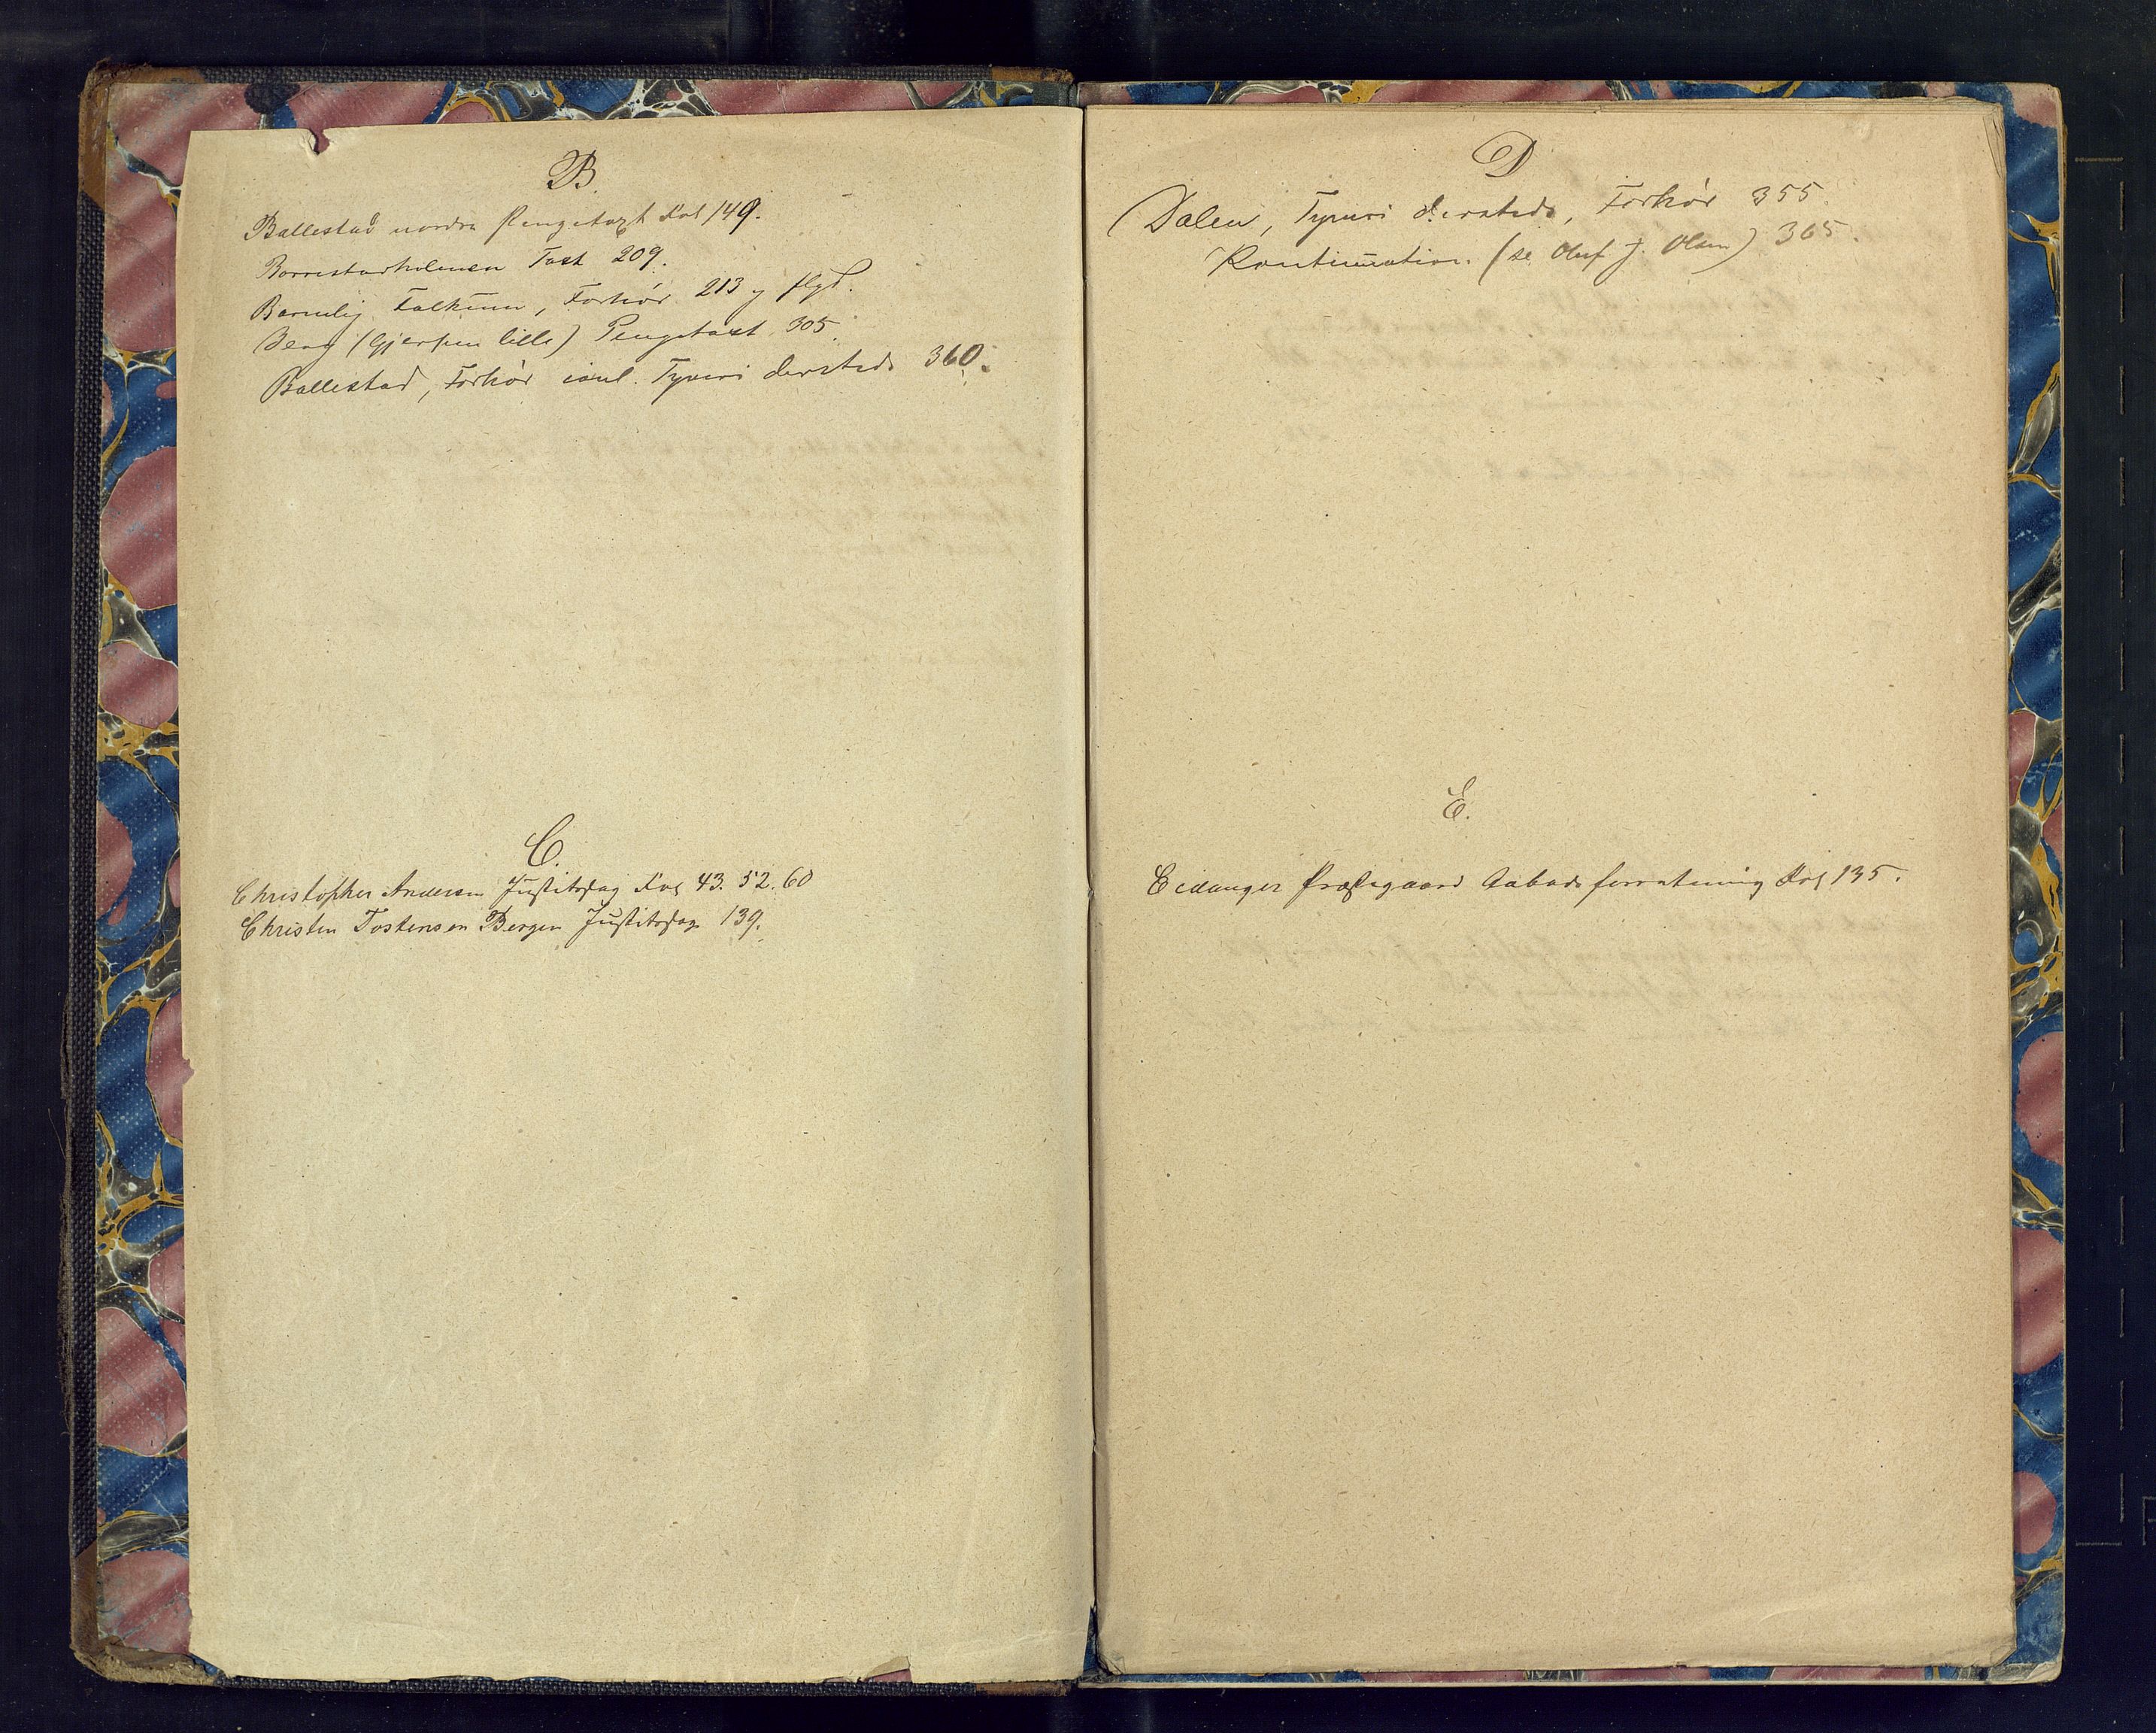 B.
Ballestad nordre Pengetaxt Fol 149.
Borrestadholmen Taxt 209.
Falkum, Forhör 213 og flgd.
Berg (Gjerpen lille) Pengetaxt 305.
Ballestad, Forhör Tyveri dersteds 360.
C.
Christopher Andersen Justitssag Fol 43. 52. 60
Christen Tostensen Bergen Justitssag 139.
D
Dalen, Tyveri dersteds, Forhör 355.
Kontinuation. (se Oluf J. Olsen) 365.
E.
Eidanger Præstegaard Aabodsforretning Fol 135.